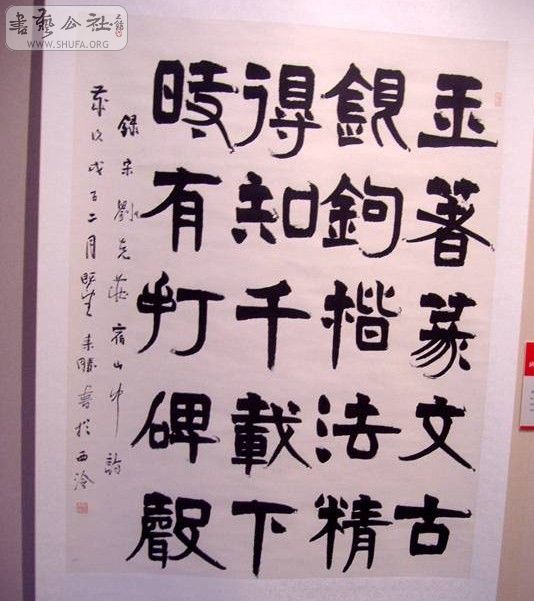 書藝公社
WWW.SHUFA.ORG
玉著篆文古
銀鉤楷法精
得知千載下
時有打碑聲
錄宋劉克莊宿山中詩
歲次戊子二月既望書於西泠